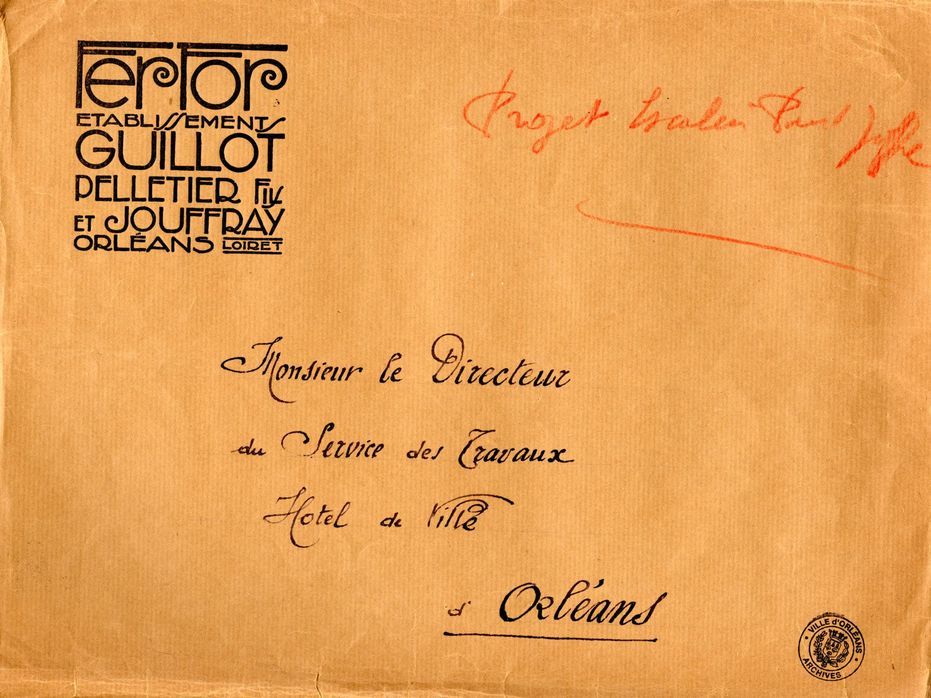 FerFor
ETABLISSEMENTS
GUILLOT
PELLETIER Fils
ET JOUFFRAY
ORLÉANS LOIRET
Projet
Monsieur le Directeur
du Service des Travaux
Hotel de Ville
d'Orléans
VILLE d'ORLÉANS
ARCHIVES